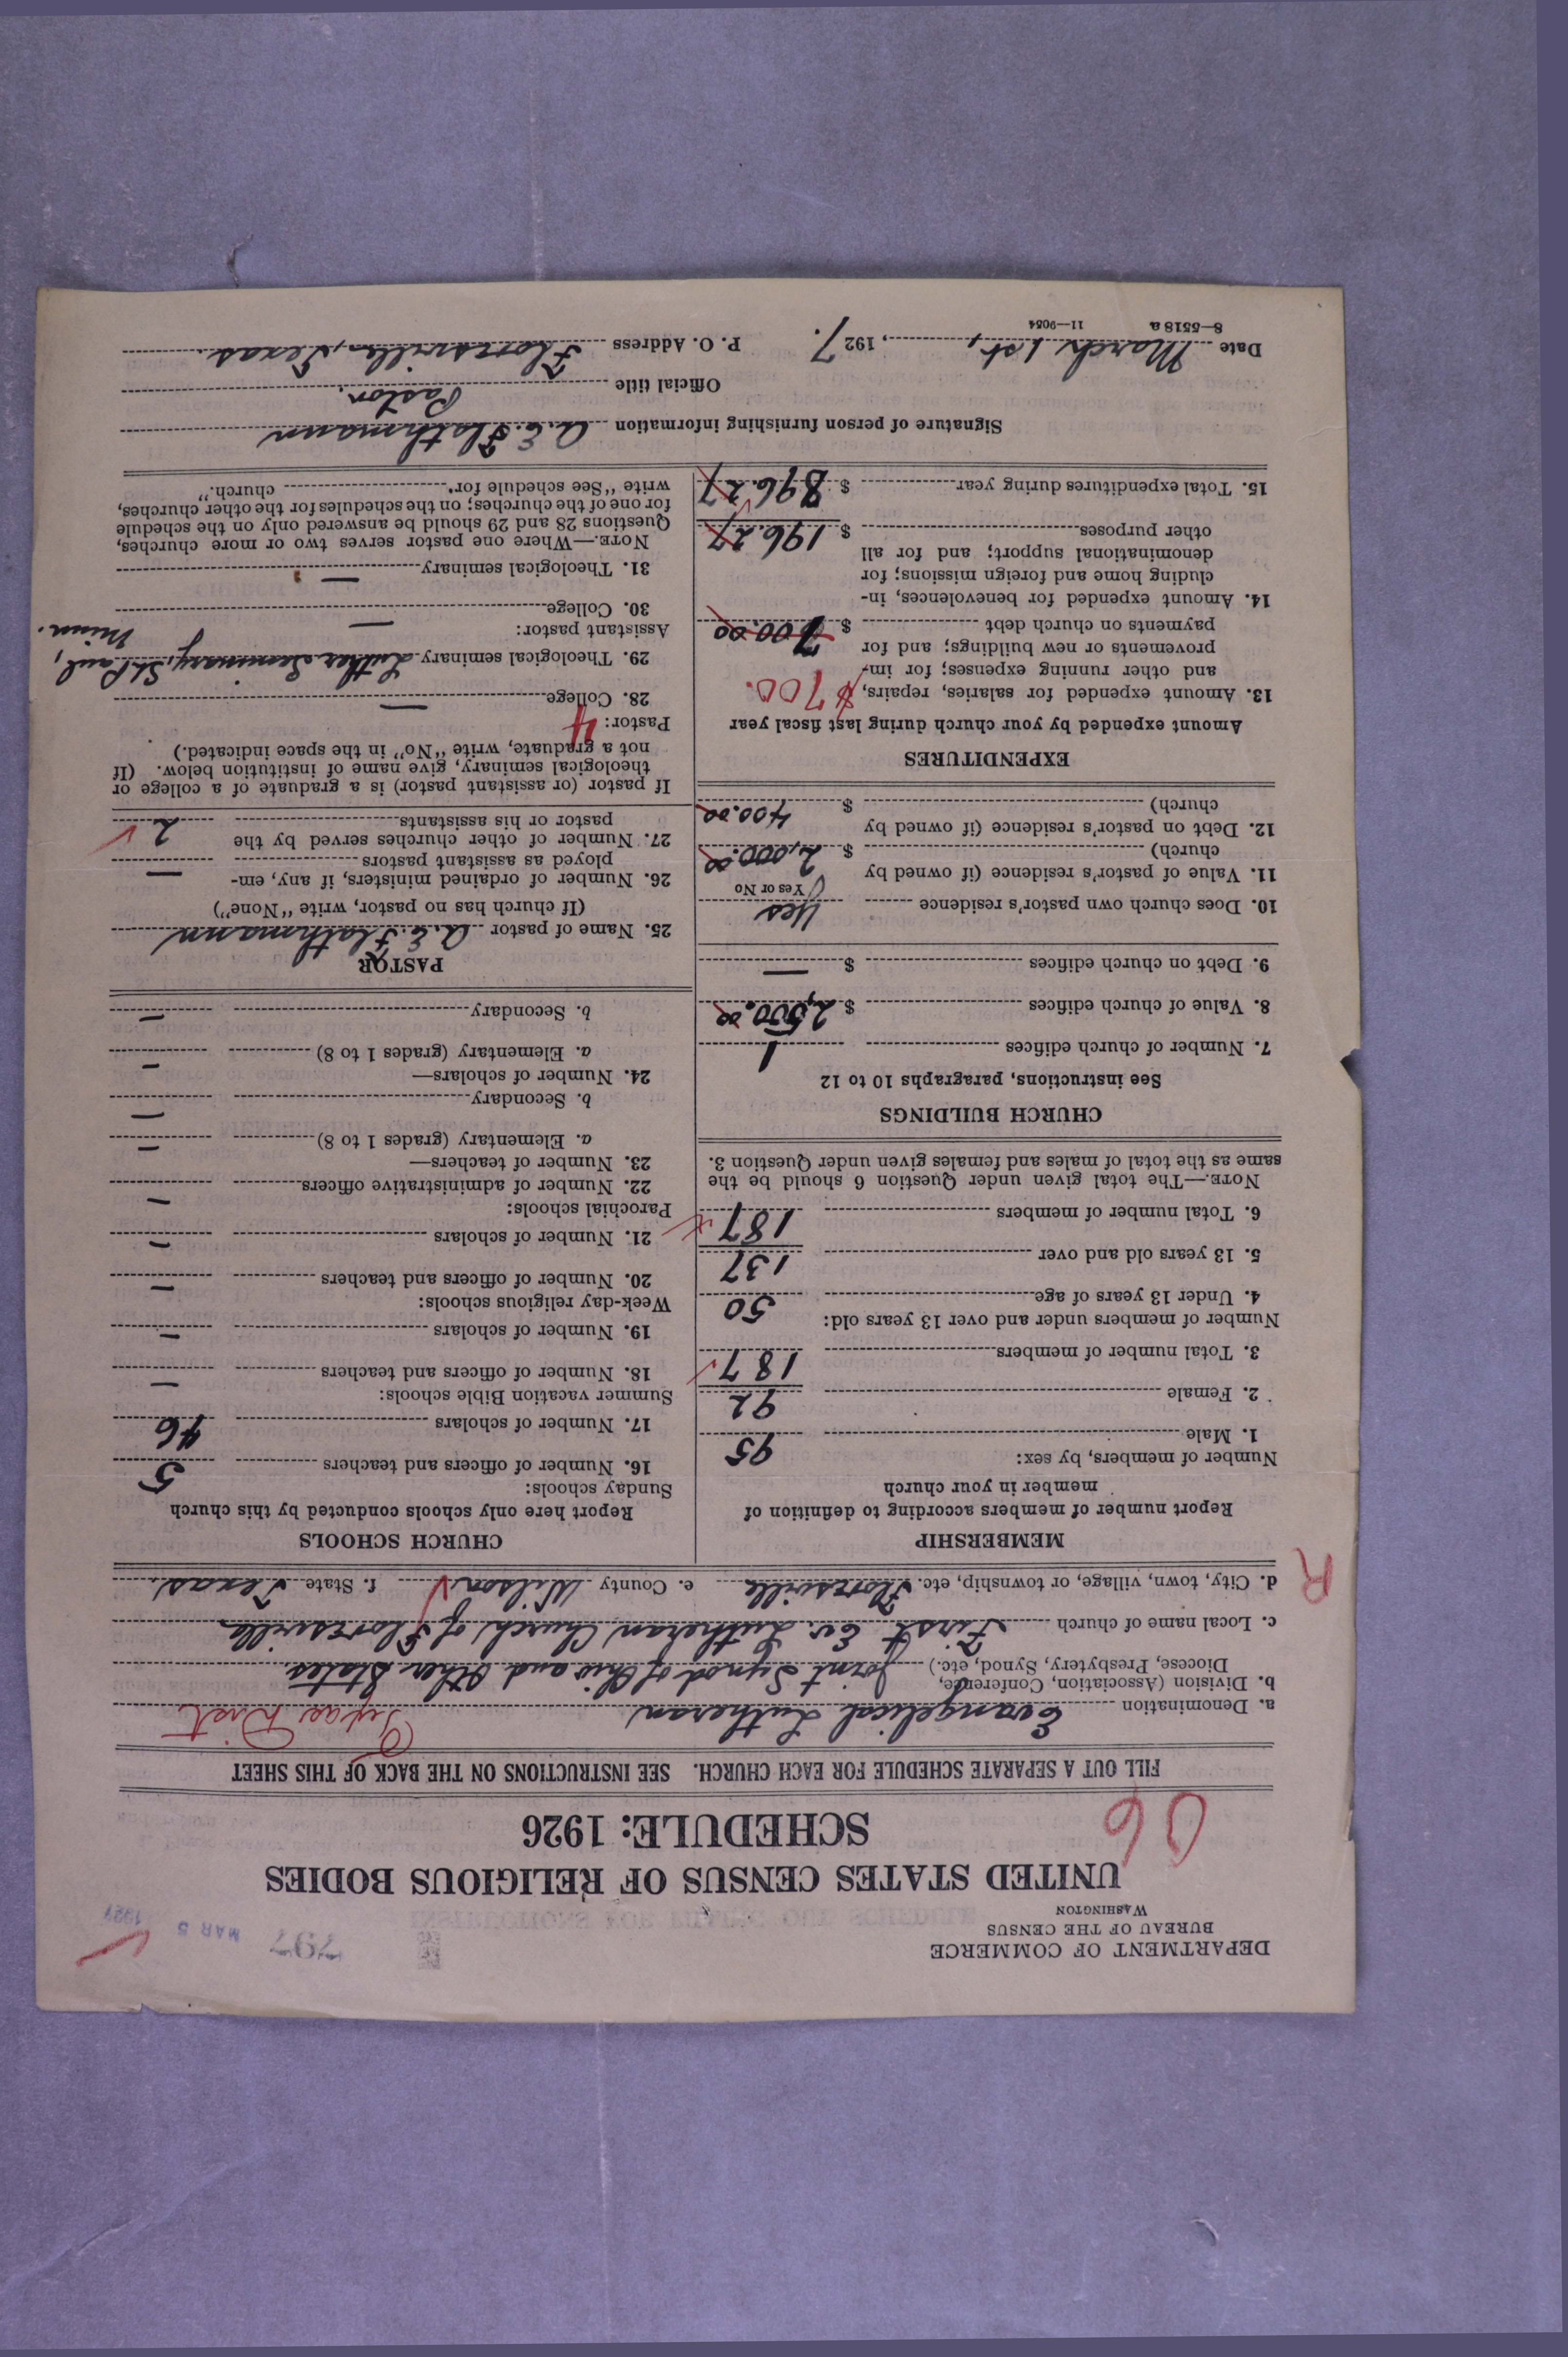 DEPARTMENT OF COMMERCE
BUREAU OF THE CENSUS
WASHINGTON
297
MAR 5 1927
UNITED STATES CENSUS OF RELIGIOUS BODIES
SCHEDULE: 1926
06
FILL OUT A SEPARATE SCHEDULE FOR EACH CHURCH. SEE INSTRUCTIONS ON THE BACK OF THIS SHEET
a. Denomination Evangelical Lutheran Texas Dist
b. Division (Association, Conference, Diocese, Presbytery, Synod, etc.) Joint Synod of Ohio and Other States.
c. Local name of church First Ev. Lutheran Church of Floresville
d. City, town, village, or township, etc. Floresville e. County Wilson f. State Texas.
R
MEMBERSHIP
Report number of members according to definition of
member in your church
Number of members, by sex:
1. Male 95
2. Female 92
3. Total number of members 187
Number of members under and over 13 years old:
4. Under 13 years of age 50
5. 13 years old and over 137
6. Total number of members 187
NOTE.—The total given under Question 6 should be the
same as the total of males and females given under Question 3.
CHURCH BUILDINGS
See instructions, paragraphs 10 to 12
7. Number of church edifices 1
8. Value of church edifices $ 2,500.00
9. Debt on church edifices $ —
10. Does church own pastor's residence Yes
Yes or No
11. Value of pastor's residence (if owned by
church) $ 2,000.00
12. Debt on pastor's residence (if owned by
church) $ 400.00
EXPENDITURES
Amount expended by your church during last fiscal year
13. Amount expended for salaries, repairs, $700.
and other running expenses; for im-
provements or new buildings; and for
payments on church debt $ 700.00
14. Amount expended for benevolences, in-
cluding home and foreign missions; for
denominational support; and for all
other purposes $ 196.27
15. Total expenditures during year $ 896.27
CHURCH SCHOOLS
Report here only schools conducted by this church
Sunday schools:
16. Number of officers and teachers 5
17. Number of scholars 46
Summer vacation Bible schools:
18. Number of officers and teachers —
19. Number of scholars —
Week-day religious schools:
20. Number of officers and teachers —
21. Number of scholars —
Parochial schools:
22. Number of administrative officers —
23. Number of teachers—
a. Elementary (grades 1 to 8) —
b. Secondary —
24. Number of scholars—
a. Elementary (grades 1 to 8) —
b. Secondary —
PASTOR
25. Name of pastor A. E. Flathmann
(If church has no pastor, write "None")
26. Number of ordained ministers, if any, em-
ployed as assistant pastors —
27. Number of other churches served by the
pastor or his assistants 2
If pastor (or assistant pastor) is a graduate of a college or
theological seminary, give name of institution below. (If
not a graduate, write "No" in the space indicated.)
Pastor: 4
28. College —
29. Theological seminary Luther Seminary, St. Paul, Minn.
Assistant pastor:
30. College —
31. Theological seminary —
NOTE.—Where one pastor serves two or more churches,
Questions 28 and 29 should be answered only on the schedule
for one of the churches; on the schedules for the other churches,
write "See schedule for church."
Signature of person furnishing information A. E. Flathmann
Official title Pastor.
Date March 1st, , 1927. P. O. Address Floresville, Texas.
8—5518 a 11—9054